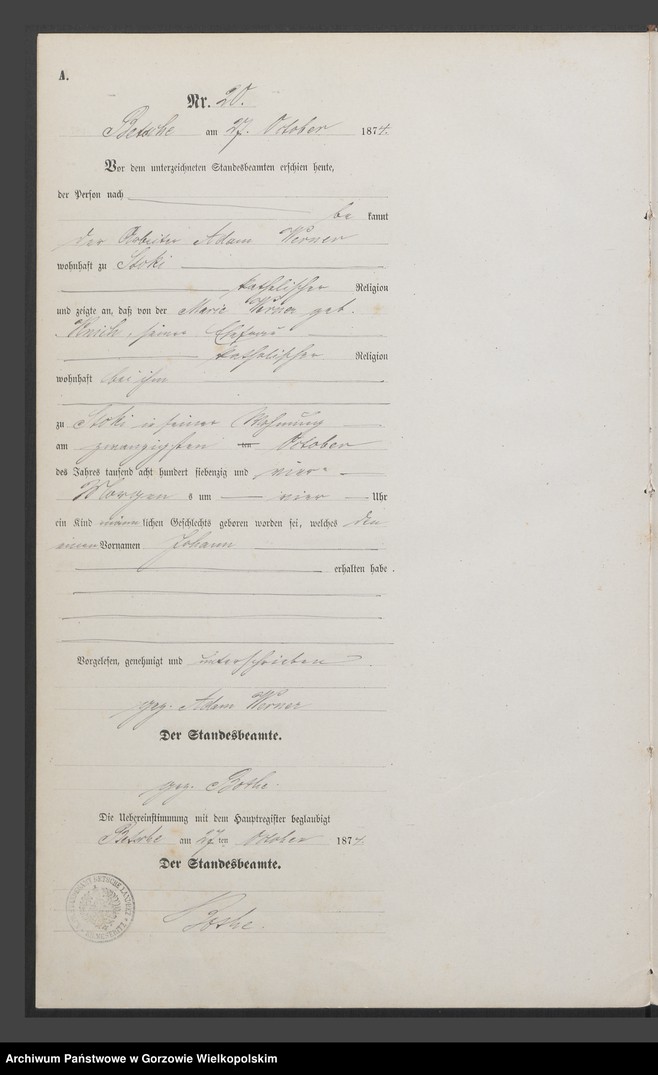 A.
Nr. 20.
Betsche am 27. October 1874.
Vor dem unterzeichneten Standesbeamten erschien heute,
der Person nach
be kannt
der Arbeiter Adam Werner
wohnhaft zu Stoki
katholischer Religion
und zeigte an, daß von der Marie Werner geb.
seiner Ehefrau
katholischer Religion
wohnhaft bei ihm
zu Stoki in seiner Wohnung
am zwanzigsten ten October
des Jahres tausend acht hundert siebenzig und vier
Morgen s um vier Uhr
ein Kind männ lichen Geschlechts geboren worden sei, welches den
einen Vornamen Johann
erhalten habe .
Vorgelesen, genehmigt und unterschrieben .
gez. Adam Werner
Der Standesbeamte.
gez. Bothe.
Die Uebereinstimmung mit dem Hauptregister beglaubigt
Betsche am 27 ten October 1874.
Der Standesbeamte.
Bothe.
Archiwum Państwowe w Gorzowie Wielkopolskim